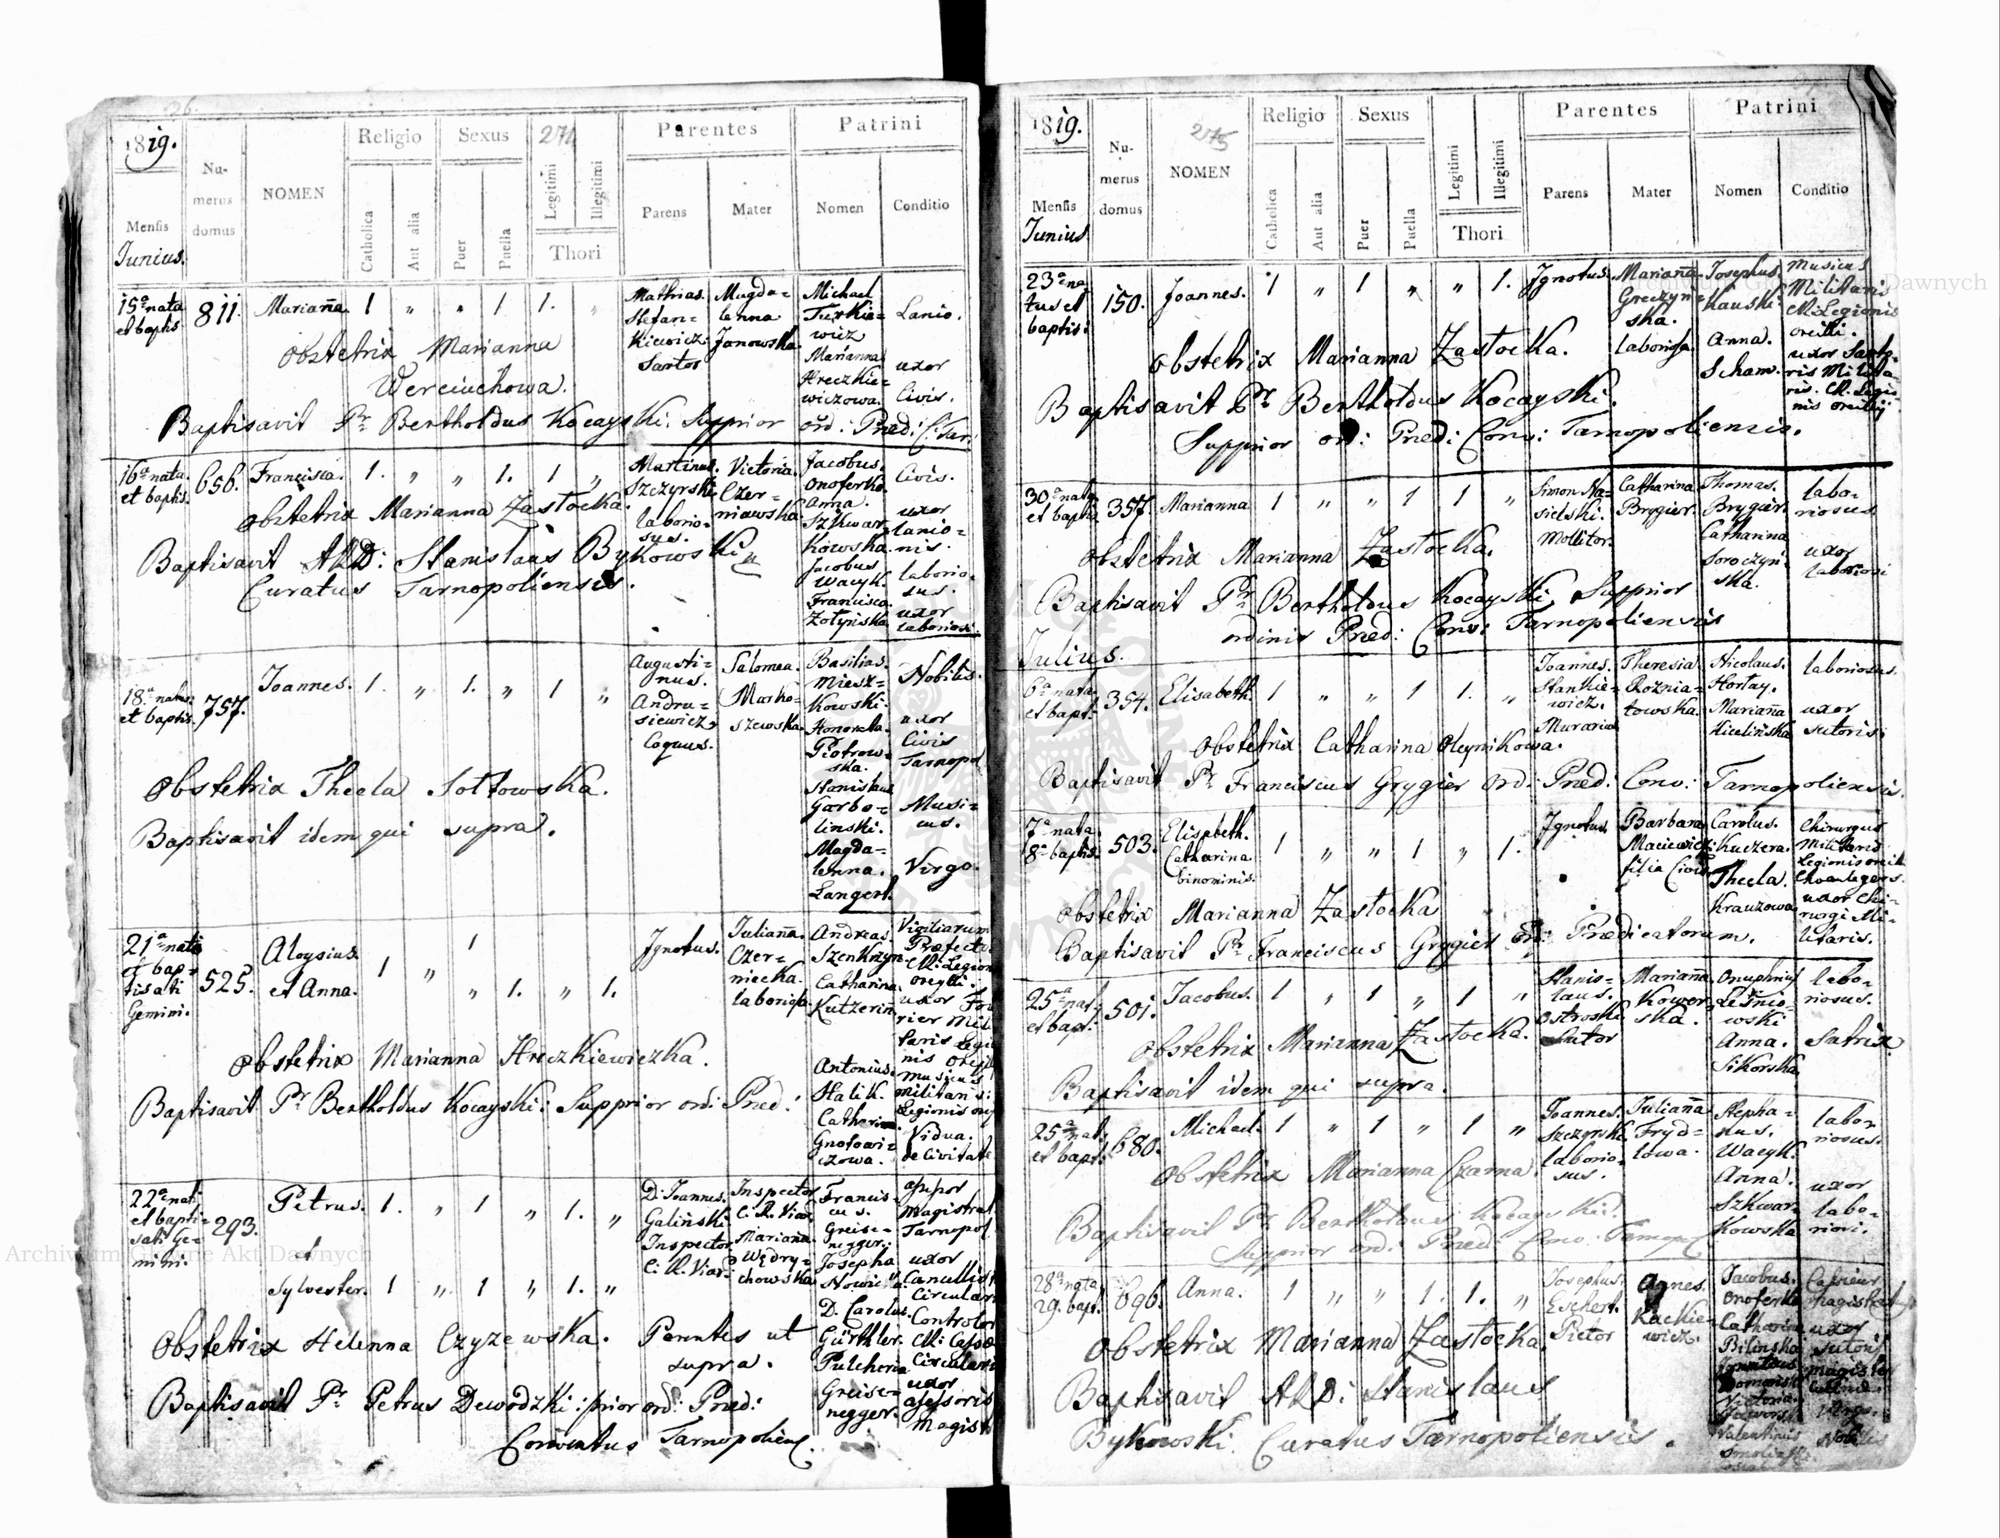 26.
1819.
Nu-
merus
domus
NOMEN
Religio
Sexus
274
Parentes
Patrini
Mensis
Junius.
Catholica
Aut alia
Puer
Puella
Legitimi
Illegitimi
Thori
Parens
Mater
Nomen
Conditio
15ª nata
et baptis
811.
Mariaña
1 " " 1 1. "
Mathias
Stefan=
kiewicz.
Sartor
Magda=
lenna
Janowska
Michael
Turkie=
wicz
Marianna
Hreczkie=
wiczowa.
Lanio.
uxor
Civis.
Obstetrix Marianna
Werciuchowa.
Baptisavit Pr Bertholdus Kocayski Supprior ord: Pred:
16ª nata
et baptis.
656.
Francisca.
1. " " 1. 1 "
Martinus.
Szczyrski
laborio=
sus.
Victoria
Czer=
niawska
Jacobus.
Onoferko.
Anna.
Szkwar
kowska.
Jacobus
Wacyk.
Francisca
Zotynska
Civis.
uxor
lanio=
nis.
laborio=
sus.
uxor
laboriosi.
Obstetrix Marianna Zastocka.
Baptisavit ARD: Stanislaus Bykowski
Curatus Tarnopoliensis.
18ª natus
et baptis.
757.
Joannes.
1. " 1. " 1 "
Augusti=
nus.
Andru=
siewicz
Coquus.
Salomea.
Marko=
szewska.
Basilius.
Miesz=
kowski.
Honorata
Piotrow=
ska.
Stanislaus
Garbo=
linski.
Magda=
lenna.
Langert.
Nobilis.
uxor
Civis
Tarnopol
Musi=
cus.
Virgo.
Obstetrix Thecla Sottowska.
Baptisavit idem qui supra.
21ª nati
et bap=
tisati
Gemini.
525.
Aloysius.
et Anna.
1 " 1
" 1. " 1.
Ignotus.
Juliaña.
Czer=
niecka.
laboriosa.
Andreas.
Szenknyn
Catharina.
Kutzerin
Antonius.
Halik.
Catharina
Gnotowi=
czowa.
Vigiliarum
Præfectus
CR: Legion
oreylli.
uxor Fou
rier Mili
taris Legi
nis oreylli
musicus
militaris
Legionis orey
Vidua.
de Civitate
Obstetrix Marianna Hreczkiewiczka.
Baptisavit Pr Bertholdus Kocayski: Supprior ord: Pred:
22ª nati
et bapti=
sati Ge=
mini.
293.
Petrus.
et
Sylvester.
1. " 1 " 1. "
1 " 1 " 1. "
D: Joannes.
Galiński
Inspector
C: R. Viar
Inspector
C: R. Viar
Mariaña.
Wędry=
chowska
Francis=
cus.
Greise=
negger.
Josepha
D. Carolus.
Gürthler.
Pulcheria
Greise=
negger.
Assessor
Magistrat
Tarnopol
uxor
Cancellist
Circular
Controlor
CR: Cassæ
Circularis
uxor
assessoris
Magistr
Obstetrix Helenna Czyzewska. Parentes ut
supra.
Baptisavit Pr Petrus Dewodzki: prior ord: Pred:
Conventus Tarnopoliens.
1819.
Nu-
merus
domus
275
NOMEN
Religio
Sexus
Parentes
Patrini
Mensis
Junius
Catholica
Aut alia
Puer
Puella
Legitimi
Illegitimi
Thori
Parens
Mater
Nomen
Conditio
23ª na
tus et
baptis:
150.
Joannes.
1 " 1 " " 1.
Ignotus.
Mariaña
Greczyn=
ska.
laboriosa
Josephus
Hauski
Anna.
Scham.
Musicus
Militaris
CR: Legionis
oreilli.
uxor Sarto=
ris Milita
ris. CR. Legio
nis oreilly
Obstetrix Marianna Zastocka.
Baptisavit Pr Bertholdus Kocayski.
Supprior ord: Pred: Conv: Tarnopoliensis.
30ª nata
et baptis
357.
Marianna
1 " " 1 1 "
Simon Na=
sielski.
Mollitor.
Catharina
Brygier.
Thomas.
Brygier.
Catharina
Soroczyn
ska.
labo=
riosus
uxor
laboriosi
Obstetrix Marianna Zastocka.
Baptisavit Pr Bertholdus Kocayski Supprior
ordinis Pred: Conv: Tarnopoliensis
Julius.
6ª nata
et bapt:
354.
Elisabeth.
1 " " 1 1. "
Joannes.
Stankie=
wicz.
Murarius
Theresia
Roznia=
towska.
Nicolaus.
Hortay.
Mariaña
Kicelińska
laboriosus.
uxor
sutoris.
Obstetrix Catharina Oleynikowa.
Baptisavit Pr Franciscus Grygier Ord: Pred: Conv: Tarnopoliensis.
7ª nata.
8ª baptis.
503.
Elisabeth.
Catharina
binominis.
1 " " 1 " 1.
Ignotus.
Barbara
Maciewicz
filia Civis
Carolus.
Kuczera.
Thecla.
Krauzowa
Chirurgus
Militaris
Legionis oreilli
Chevaulegers.
uxor Chi=
rurgi Mi=
litaris.
Obstetrix Marianna Zastocka
Baptisavit Pr Franciscus Grygier ord: Prædicatorum.
25ª nat.
et bapt:
501.
Jacobus.
1 " 1 " 1 "
Stanis=
laus.
Ostroski
Sutor
Mariaña
Kower
ska.
Onuphrius
Leśnio=
wski
Anna.
Sikorska.
labo=
riosus.
Satrix
Obstetrix Marianna Zastocka.
Baptisavit idem qui supra.
25ª nat.
et bapt:
680.
Michael.
1 " 1 " 1 "
Joannes.
Szczyrski
laborio=
sus.
Juliaña
Fryd=
lowa.
Stepha=
nus.
Wacyk.
Anna.
Szkwar=
kowska
labo=
riosus.
uxor
labo=
riosi.
Obstetrix Marianna Czarna.
Baptisavit Pr Bertholdus Kocayski.
Supprior ord: Pred: Conv: Tarnopol
28ª nata
29. bapt:
696.
Anna.
1 " " 1. 1. "
Josephus.
Eschert.
Pictor
Agnes.
Kackie=
wicz.
Jacobus.
Onoferko
Catharina
Bilinska
Victoria.
Valentinus
uxor
sutoris
Nobilis
Obstetrix Marianna Zastocka.
Baptisavit ARD: Stanislaus
Bykowski. Curatus Tarnopoliensis.
Archiwum Główne Akt Dawnych
Archiwum Główne Akt Dawnych